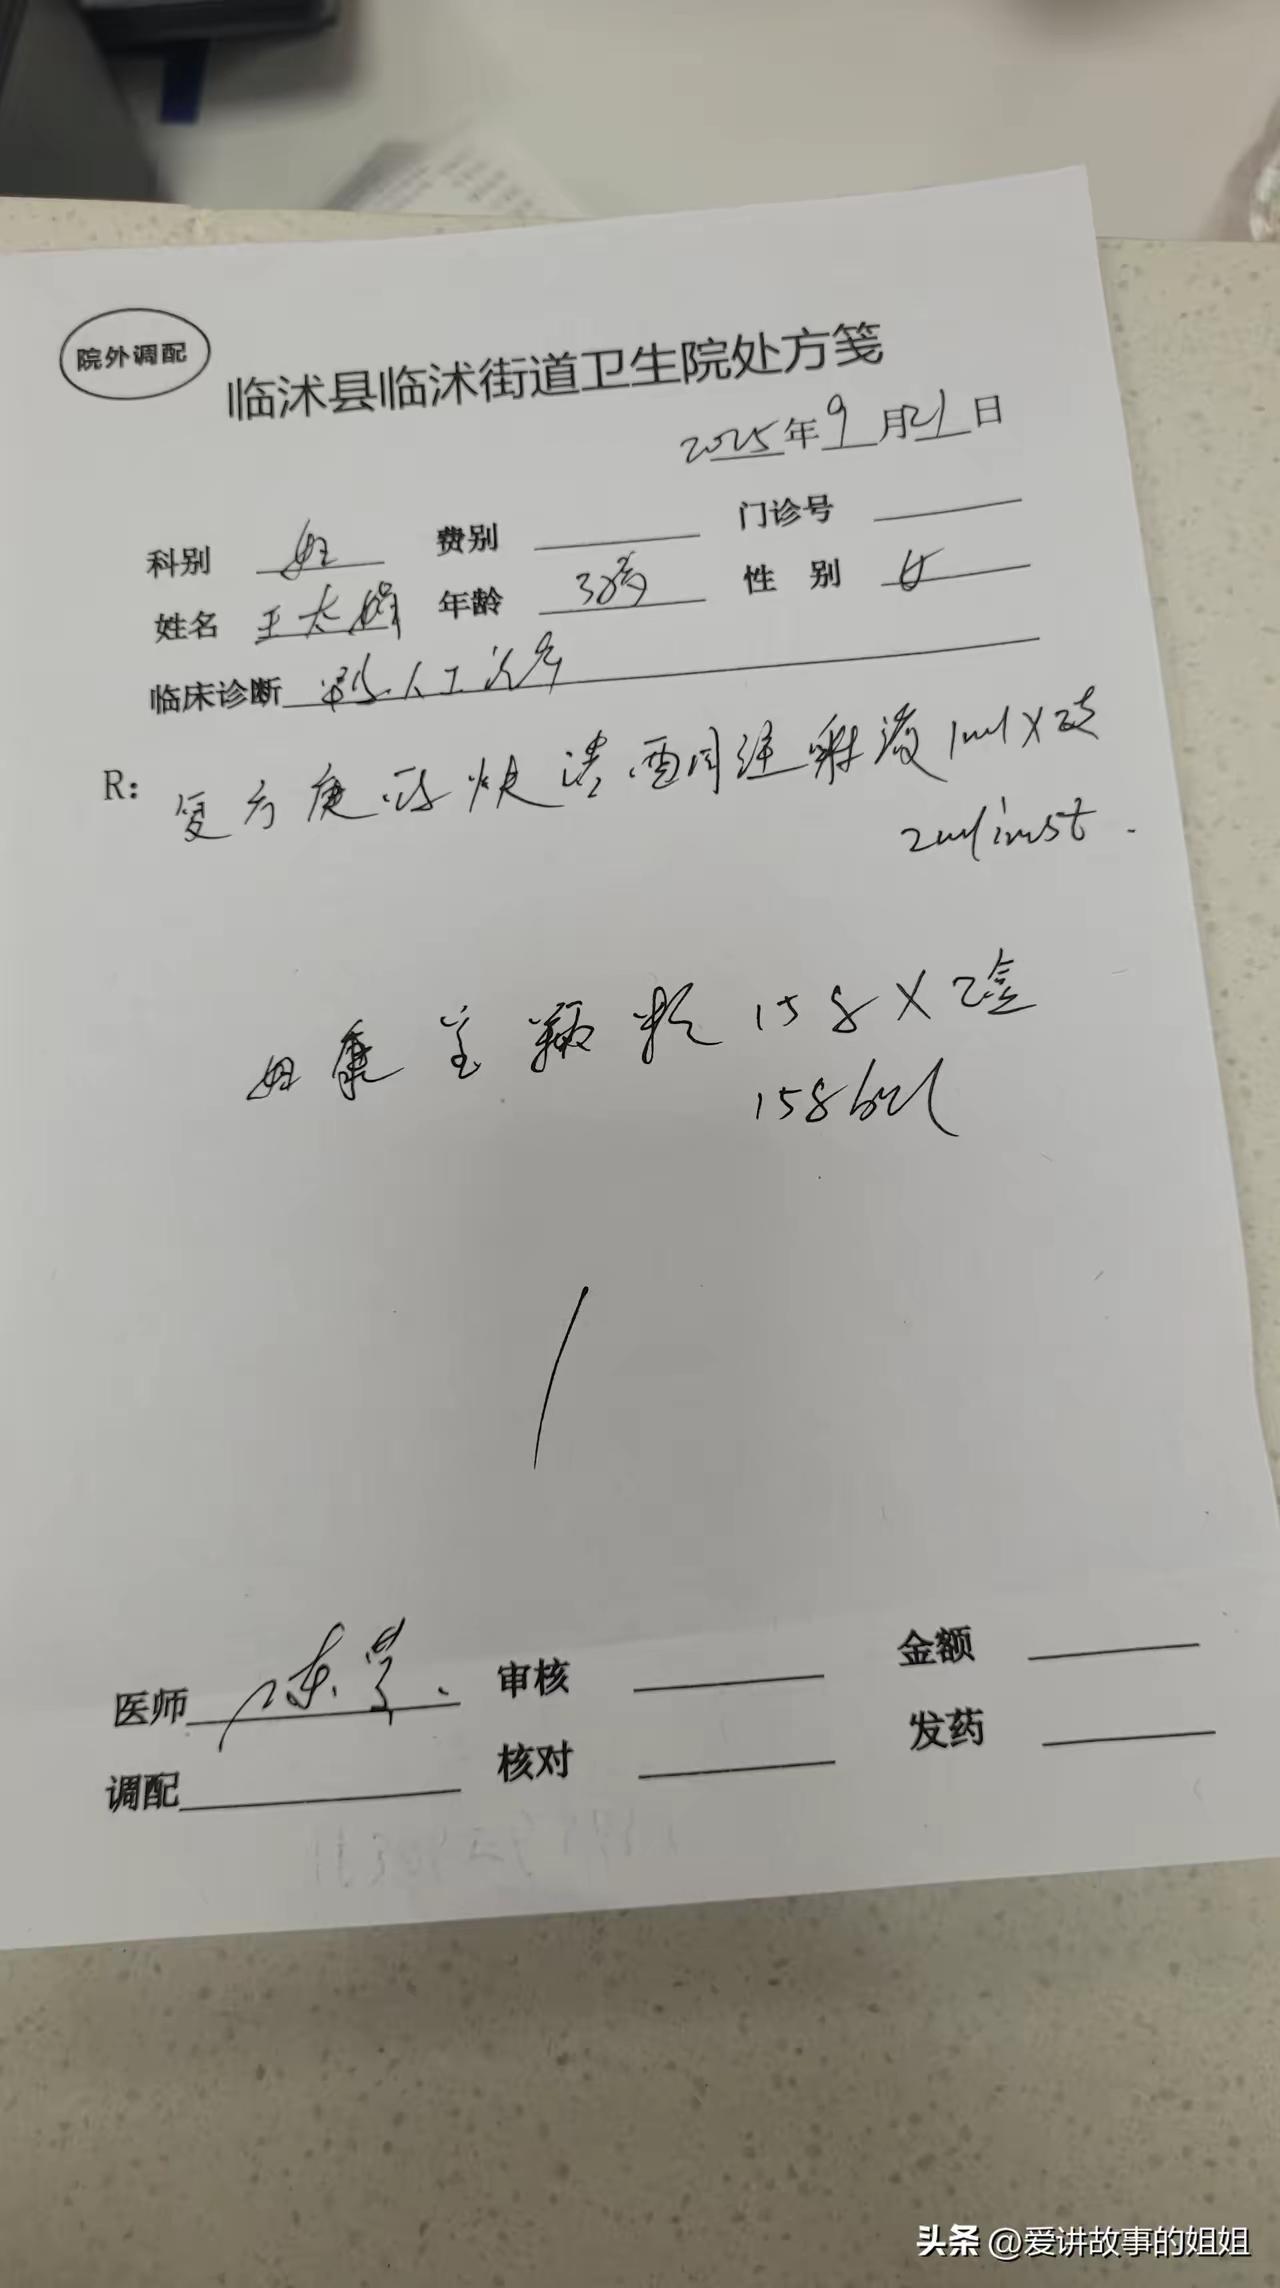 院外调配
临沭县临沭街道卫生院处方笺
2025年9月21日
科别 妇 费别 门诊号
姓名 王 年龄 3岁 性 别 女
临床诊断 人工
R: 复方庚酸炔诺酮注射液1ml×2支
2ml imst.
妇康宝颗粒 15g×2盒
15g bid
医师 陈 审核 金额
调配 核对 发药
头条 @爱讲故事的姐姐